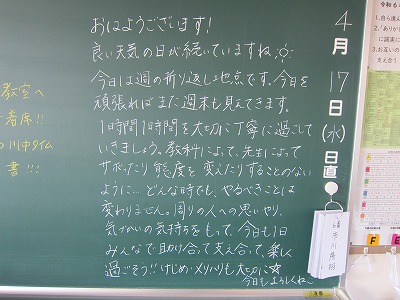 おはようございます!
良い天気の日が続いていますね
今日は週の折り返し地点です。今日を
頑張ればまた週末も見えてきます。
1時間1時間を大切に丁寧に過ごして
いきましょう。教科によって、先生によって
サボったり態度を変えたりすることのない
ように…どんな時でも、やるべきことは
変わりません。周りの人への思いやり、
気づかいの気持ちをもって、今日も1日
みんなで助け合って支え合って、楽しく
過ごそう!!けじめ・メリハリも大切に☆
今日もよろしくね
4月17日(水)日直
教室へ
着席!!
川中タイム
書!!!
1.自ら進ん
2.「ありが
に誠実に
3.お互いの
支え合う
F
E